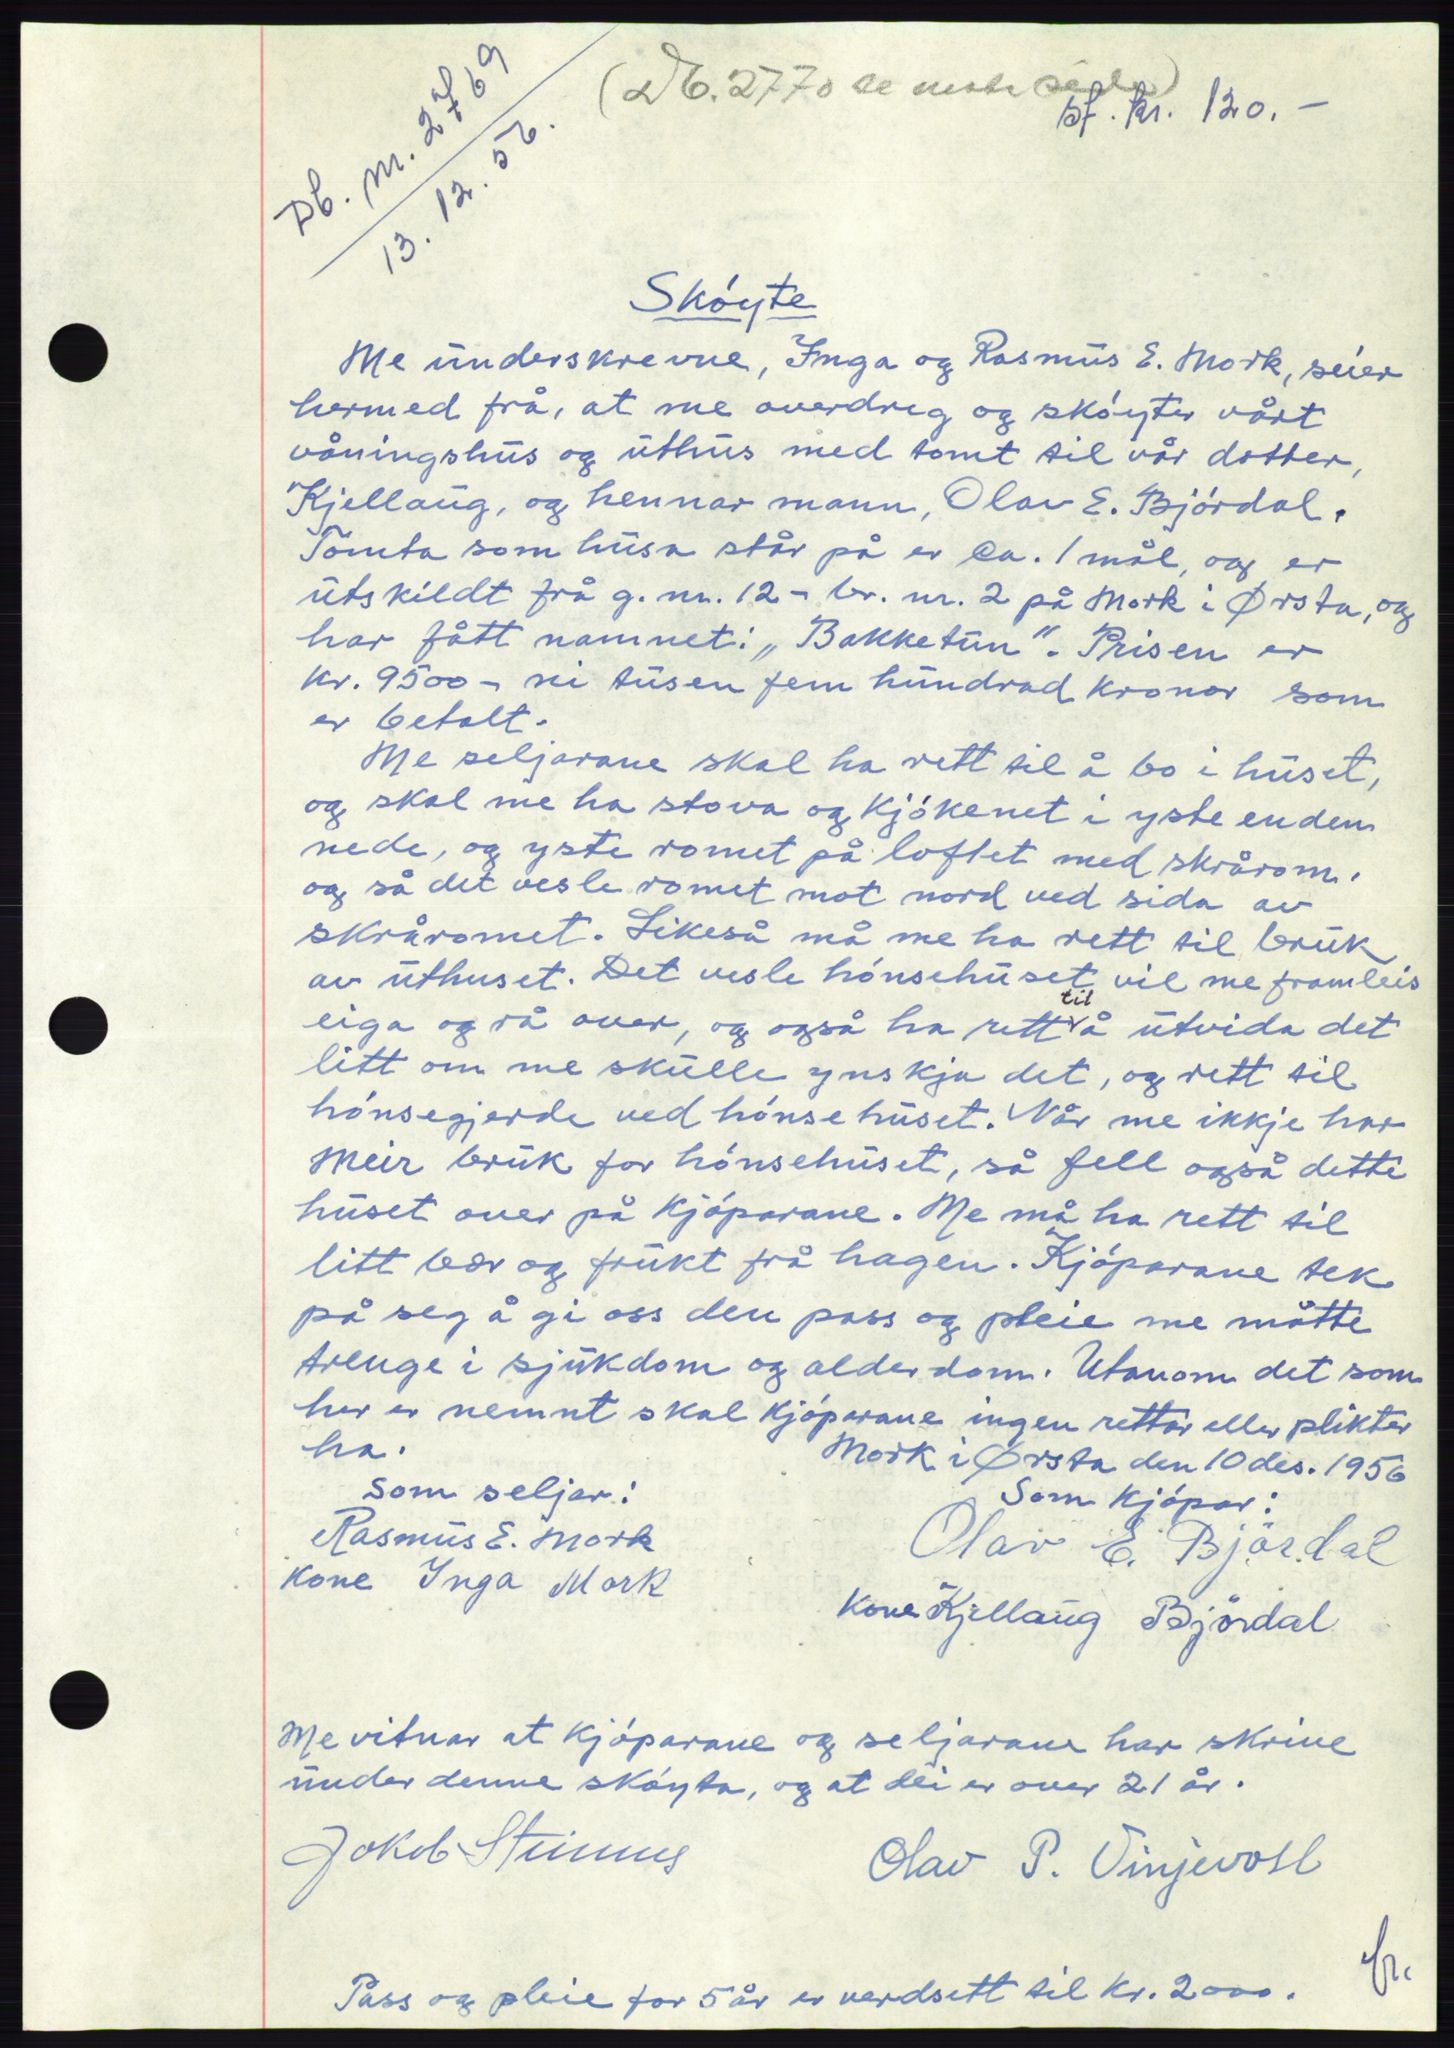 (Db. 2770 se neste side)
Db. nr. 2769
13. 12. 56.
Bf. kr. 120.-
Skóyte
Me underskrevne, Inga og Rasmus E. Mork, seier
hermed frå, at me overdreg og skóyter vårt
våningshus og uthus med tomt til vår dotter,
Kjellaug, og hennar mann, Olav E. Bjórdal.
Tomta som husa står på er ca. 1 mål, og er
utskildt frå g. nr. 12 - br. nr. 2 på Mork i Ørsta, og
har fått namnet: „Bakketun". Prisen er
kr. 9500 - ni tusen fem hundrad kronor som
er betalt.
Me seljarane skal ha rett til å bo i huset,
og skal me ha stova og kjókenet i yste enden
nede, og yste romet på loftet med skrårom,
og så det vesle romet mot nord ved sida av
skråromet. Likeså må me ha rett til bruk
av uthuset. Det vesle hónsehuset vil me framleis
eiga og rå over, og også ha rett til å utvida det
litt om me skulle ynskja det, og rett til
hónsegjerde ved hónsehuset. Når me ikkje har
meir bruk for hónsehuset, så fell også dette
huset over på kjóparane. Me må ha rett til
litt bær og frukt frå hagen. Kjóparane tek
på seg å gi oss den pass og pleie me måtte
trenge i sjukdom og alderdom. Utanom det som
her er nemnt skal kjóparane ingen rettar eller plikter
ha.
Mork i Ørsta den 10 des. 1956
Som seljar:
Som kjópar:
Rasmus E. Mork
Olav E. Björdal
kone Inga Mork
Kone Kjellaug Bjórdal
Me vitnar at kjóparane og seljarane har skrive
under denne skóyta, og at dei er over 21 år.
Jokob
Olav P. Vinjevoll
Pass og pleie for 5 år er verdsett til kr. 2000.